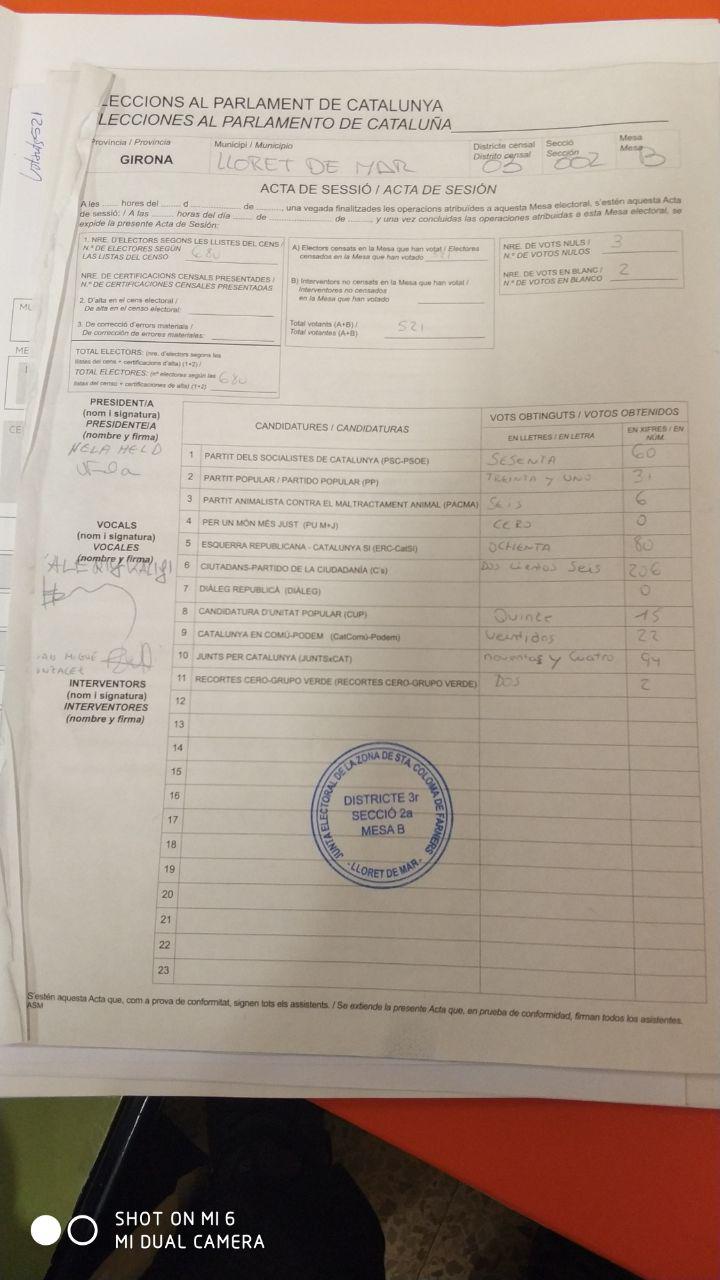 LECCIONS AL PARLAMENT DE CATALUNYA
LECCIONES AL PARLAMENTO DE CATALUÑA
Província / Provincia
GIRONA
Municipi / Municipio
LLORET DE MAR
Districte censal
Distrito censal
03
Secció
Sección
002
Mesa
Mesa
B
ACTA DE SESSIÓ / ACTA DE SESIÓN
A les ........ hores del ........ d ........................ de ........, una vegada finalitzades les operacions atribuïdes a aquesta Mesa electoral, s'estén aquesta Acta
de sessió: / A las ........ horas del día ........ de ........................ de ........, y una vez concluidas las operaciones atribuidas a esta Mesa electoral, se
expide la presente Acta de Sesión:
1. NRE. D'ELECTORS SEGONS LES LLISTES DEL CENS /
N.º DE ELECTORES SEGÚN
LAS LISTAS DEL CENSO
680
NRE. DE CERTIFICACIONS CENSALS PRESENTADES /
N.º DE CERTIFICACIONES CENSALES PRESENTADAS
2. D'alta en el cens electoral /
De alta en el censo electoral:
3. De correcció d'errors materials /
De corrección de errores materiales:
TOTAL ELECTORS: (nre. d'electors segons les
llistes del cens + certificacions d'alta) (1+2) /
TOTAL ELECTORES: (nº electores según las
listas del censo + certificaciones de alta) (1+2)
680
A) Electors censats en la Mesa que han votat / Electores
censados en la Mesa que han votado
521
B) Interventors no censats en la Mesa que han votat /
Interventores no censados
en la Mesa que han votado
Total votants (A+B) /
Total votantes (A+B)
521
NRE. DE VOTS NULS /
N.º DE VOTOS NULOS
3
NRE. DE VOTS EN BLANC /
N.º DE VOTOS EN BLANCO
2
PRESIDENT/A
(nom i signatura)
PRESIDENTE/A
(nombre y firma)
NELA HELD
VOCALS
(nom i signatura)
VOCALES
(nombre y firma)
INTERVENTORS
(nom i signatura)
INTERVENTORES
(nombre y firma)
CANDIDATURES / CANDIDATURAS
VOTS OBTINGUTS / VOTOS OBTENIDOS
EN LLETRES / EN LETRA
EN XIFRES / EN NÚM.
1 PARTIT DELS SOCIALISTES DE CATALUNYA (PSC-PSOE) SESENTA 60
2 PARTIT POPULAR / PARTIDO POPULAR (PP) TREINTA Y UNO 31
3 PARTIT ANIMALISTA CONTRA EL MALTRACTAMENT ANIMAL (PACMA) SEIS 6
4 PER UN MÓN MÉS JUST (PU M+J) CERO 0
5 ESQUERRA REPUBLICANA - CATALUNYA SI (ERC-CatSI) OCHENTA 80
6 CIUTADANS-PARTIDO DE LA CIUDADANÍA (C's) Dos cientos Seis 206
7 DIÀLEG REPUBLICÀ (DIÀLEG) 0
8 CANDIDATURA D'UNITAT POPULAR (CUP) Quince 15
9 CATALUNYA EN COMÚ-PODEM (CatComú-Podem) Veintidos 22
10 JUNTS PER CATALUNYA (JUNTSxCAT) noventas y cuatro 94
11 RECORTES CERO-GRUPO VERDE (RECORTES CERO-GRUPO VERDE) DOS 2
12
13
14
15
16
17
18
19
20
21
22
23
JUNTA ELECTORAL DE LA ZONA DE STA. COLOMA DE FARNERS
DISTRICTE 3r
SECCIÓ 2a
MESA B
- LLORET DE MAR -
S'estén aquesta Acta que, com a prova de conformitat, signen tots els assistents. / Se extiende la presente Acta que, en prueba de conformidad, firman todos los asistentes.
ASM
SHOT ON MI 6
MI DUAL CAMERA